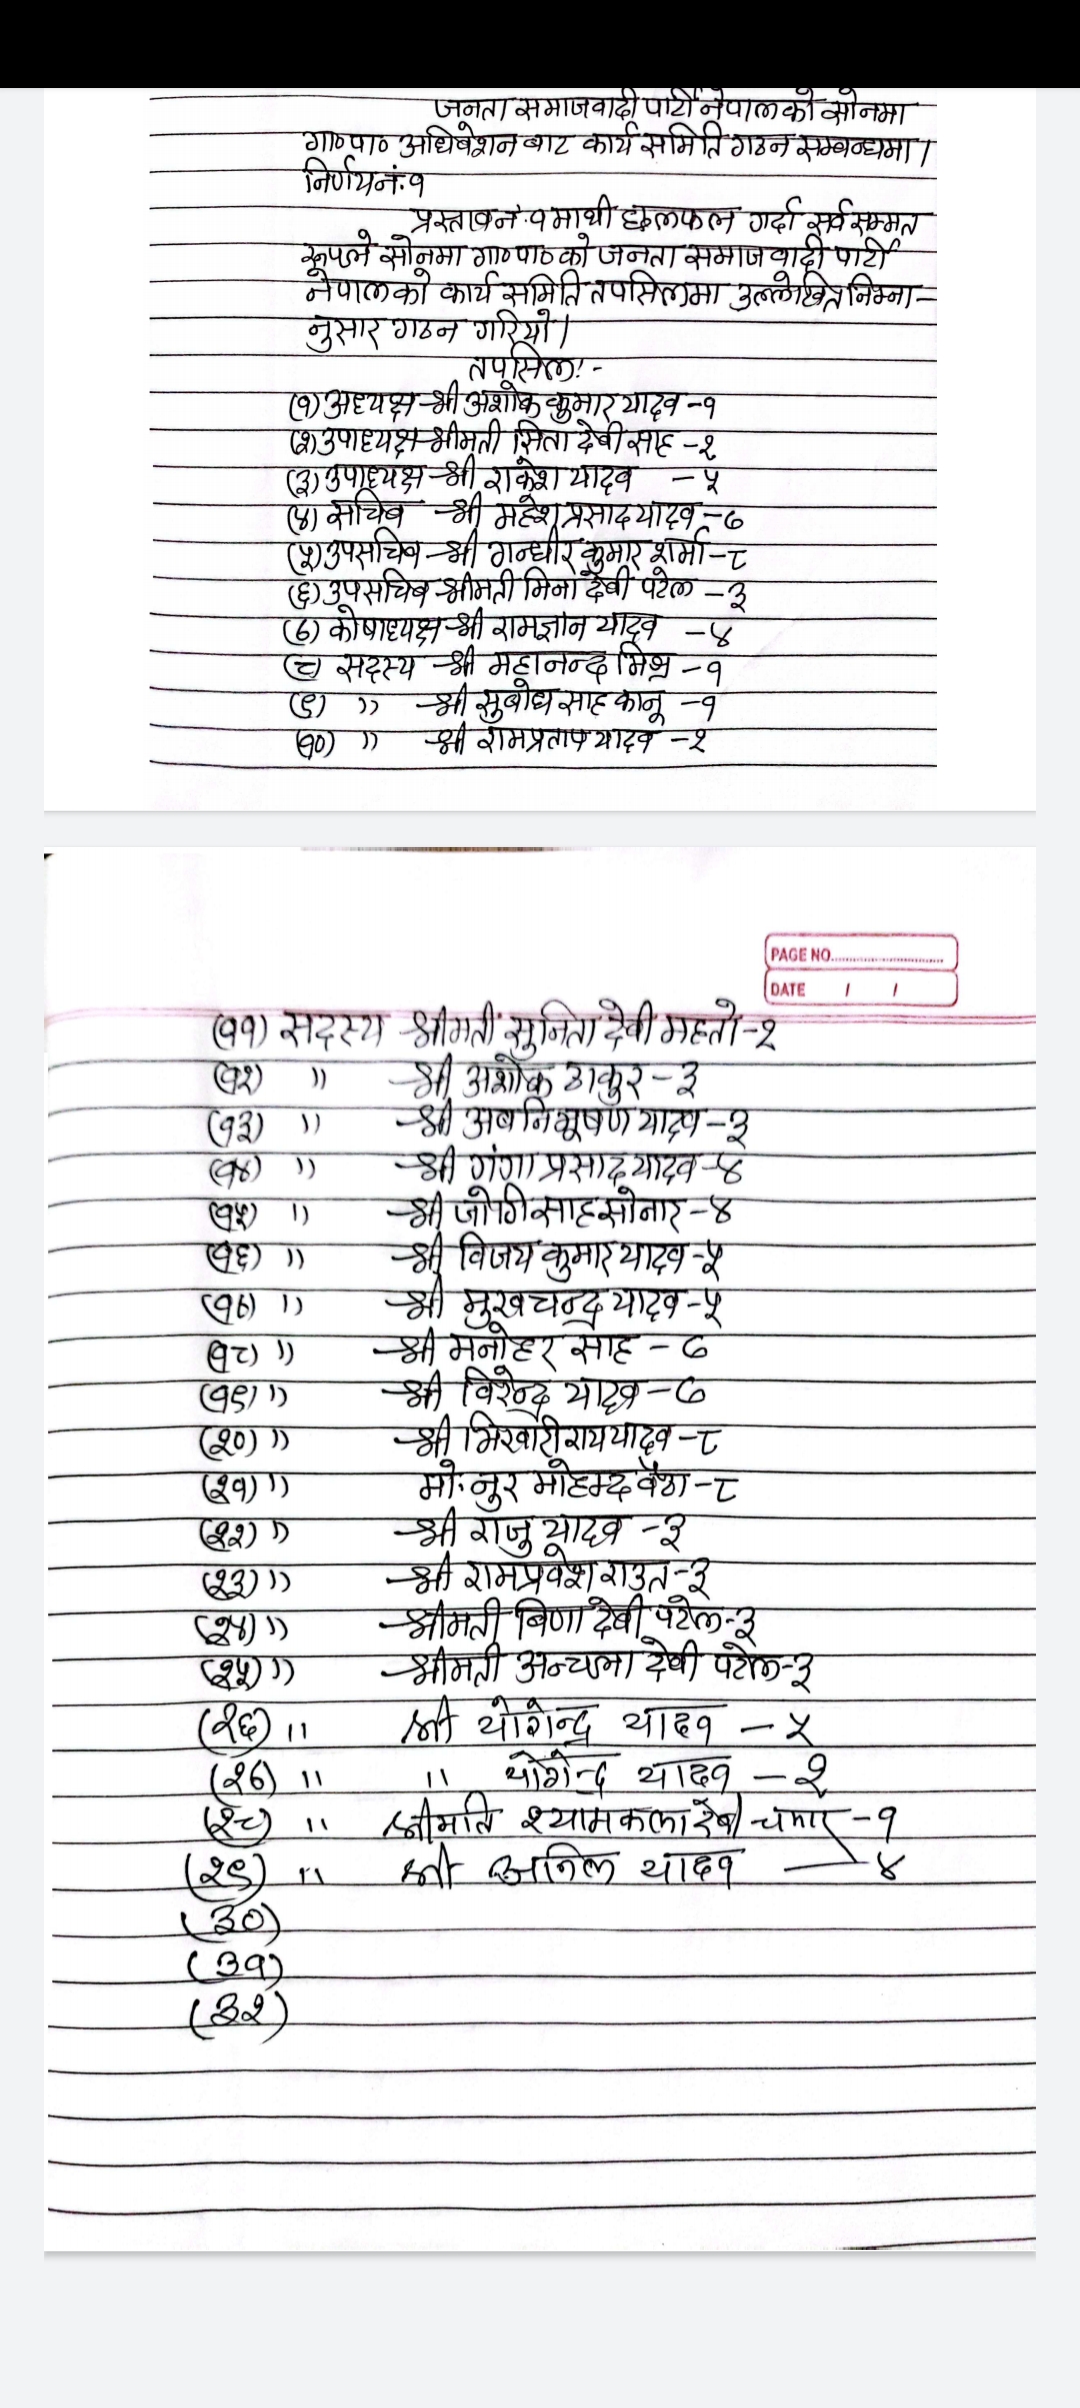 जनता समाजवादी पार्टी नेपालको सोनमा
गा०पा० अधिबेशन बाट कार्य समिति गठन सम्बन्धमा।
निर्णय नं:१
प्रस्ताव नं.१ माथी छलफल गर्दा सर्व सम्मत
रूपले सोनमा गा०पा०को जनता समाजवादी पार्टी
नेपालको कार्य समिति तपसिलमा उल्लेखित निम्ना-
नुसार गठन गरियो।
तपसिल:-
(१) अध्यक्ष-श्री अशोक कुमार यादव -१
(२) उपाध्यक्ष-श्रीमती सिता देबी साह -२
(३) उपाध्यक्ष-श्री राकेश यादव -५
(४) सचिब -श्री महेश प्रसाद यादव -७
(५) उपसचिब-श्री गन्धीर कुमार शर्मा-८
(६) उपसचिब-श्रीमती मिना देबी पटेल -३
(७) कोषाध्यक्ष-श्री रामज्ञान यादव -४
(८) सदस्य -श्री महानन्द मिश्र -१
(९) " -श्री सुबोध साह कानू -१
(१०) " -श्री रामप्रताप यादव -२
PAGE NO.
DATE / /
(११) सदस्य -श्रीमती सुनिता देबी महतो-२
(१२) " -श्री अशोक ठाकुर - ३
(१३) " -श्री अबनिभूषण यादव -३
(१४) " -श्री गंगा प्रसाद यादव -४
(१५) " -श्री जोगि साह सोनार -४
(१६) " -श्री विजय कुमार यादव -५
(१७) " -श्री मुखचन्द्र यादव -५
(१८) " -श्री मनोहर साह - ७
(१९) " -श्री विरेन्द्र यादव -७
(२०) " -श्री भिखारी राय यादव -८
(२१) " मो. नुर मोहम्द -८
(२२) " -श्री राजु यादव -३
(२३) " -श्री रामप्रवेश राउत -३
(२४) " -श्रीमती बिणा देबी पटेल-३
(२५) " -श्रीमती देबी पटेल-३
(२६) " श्री योगेन्द्र यादव - ५
(२७) " " योगेन्द्र यादव - २
(२८) " श्रीमति श्यामकला देबी चमार -१
(२९) " श्री अनिल यादव - ४
(३०)
(३१)
(३२)